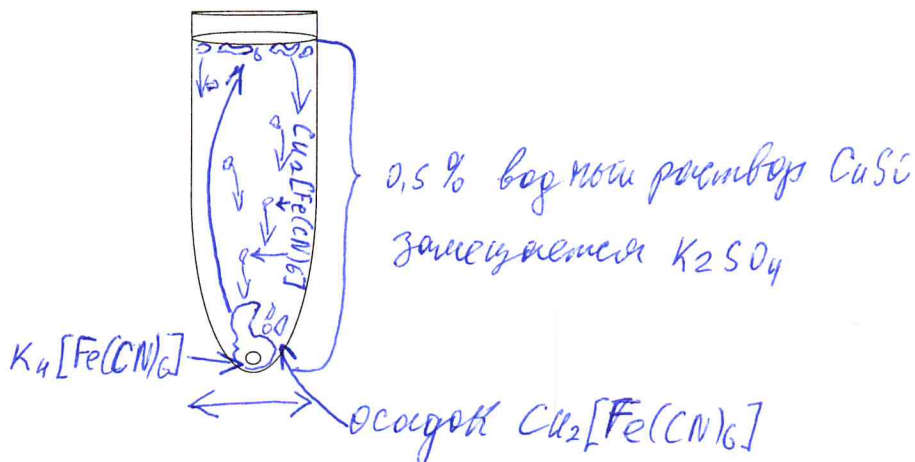 Cu₂[Fe(CN)6]
0,5% водный раствор CuSO
замещается K2SO4
K4[Fe(CN)6]
осадок Cu₂[Fe(CN)6]